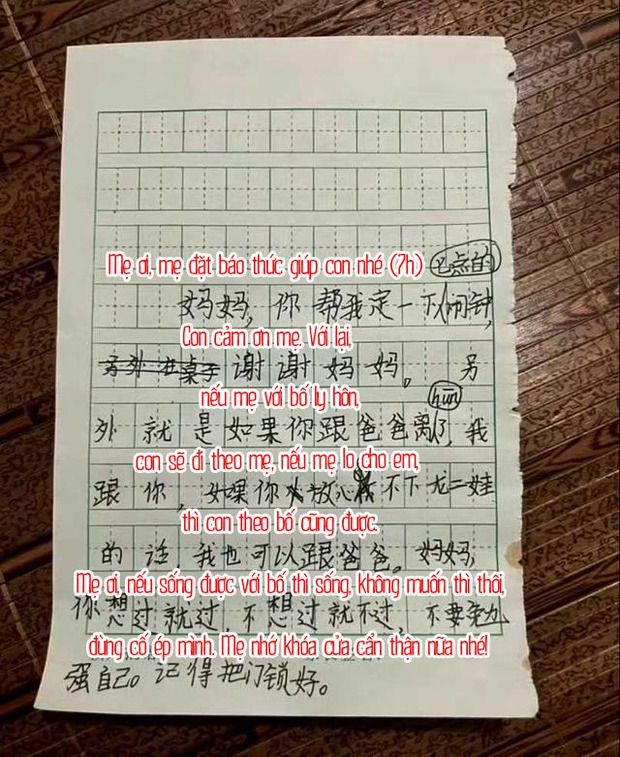 Mẹ ơi, mẹ đặt báo thức giúp con nhé (7h)
七点的
妈妈，你帮我定一下闹钟，
Con cảm ơn mẹ. Với lại,
谢谢妈妈。另
nếu mẹ với bố ly hôn,
hūn
外就是如果你跟爸爸离了，我
con sẽ đi theo mẹ, nếu mẹ lo cho em,
跟你，如果你放心不下尤二娃
thì con theo bố cũng được.
的话我也可以跟爸爸。妈妈，
Mẹ ơi, nếu sống được với bố thì sống, không muốn thì thôi,
你想过就过，不想过就不过，不要勉
đừng cố ép mình. Mẹ nhớ khóa cửa cẩn thận nữa nhé!
强自己。记得把门锁好。